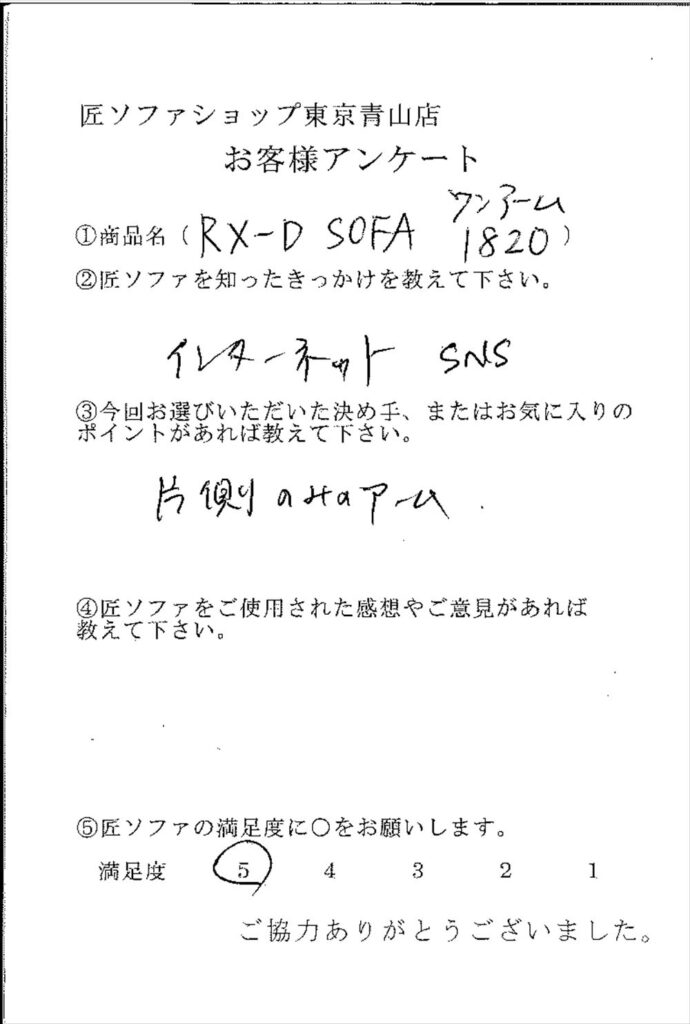 匠ソファショップ東京青山店
お客様アンケート
ワンアーム
①商品名（RX-D SOFA 1820）
②匠ソファを知ったきっかけを教えて下さい。
インターネット SNS
③今回お選びいただいた決め手、またはお気に入りの
ポイントがあれば教えて下さい。
片側のみのアーム.
④匠ソファをご使用された感想やご意見があれば
教えて下さい。
⑤匠ソファの満足度に○をお願いします。
満足度 5 4 3 2 1
ご協力ありがとうございました。